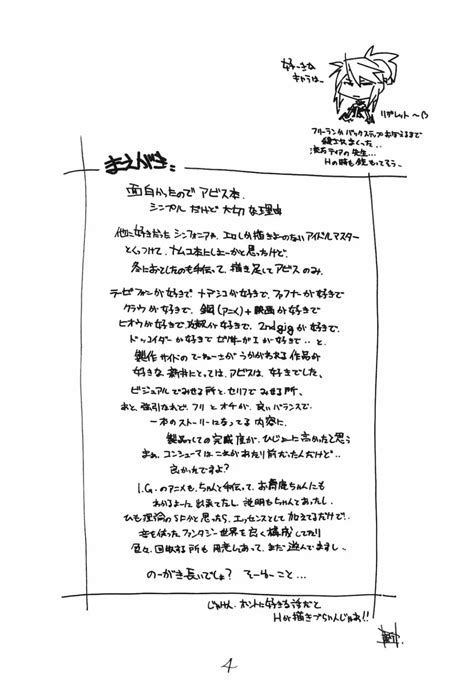 好きな
キャラは…
リグレット〜(3
まえがき。
面白かったので アビス本。
シンプル だけど 大切 な 理由
他に好きだった シンフォニアや、エロしか描きよーのない アイドルマスター
とくっつけて、ナムコ本にしよーかと思ったけど、
冬におとしたのも手伝って、描き足して アビス のみ。
が好きで、ナデシコが好きで、ファフナーが好きで
クラウが好きで、鋼(アニメ)+映画が好きで
ヒオウが好きで、攻殻が好きで、2nd gig が好きで、
ドッコイダーが好きで
製作サイドの てーねーさがうかがわれる作品が
好きな 新井にとっては、アビスは、好きでした。
ビジュアルでみせる所と、セリフで みせる所、
あと、強引なれど、フリ と オチが、良い バランスで、
一本のストーリーになってる 内容に
製品としての完成度が、ひじょーに高かったと思う
まぁ、コンシューマは これがあたり前だったんだけど…
良かったですよ?
I.G.のアニメも、ちゃんと手伝って、お馬鹿ちゃんにも
わかるように出来てたし、説明もちゃんとあったし、
ひも理論のSFかと思ったら、エッセンスとして加えてるだけで!
音を使った ファンタジー世界を良く構成してたり
色々、回収する所も 用意してあって、まだ遊んでますし。
のーがき長いでしょ? そーゆーこと…
じゃけん、ホントに好きな話だと
Hが描きづらいんじゃあ!!
4